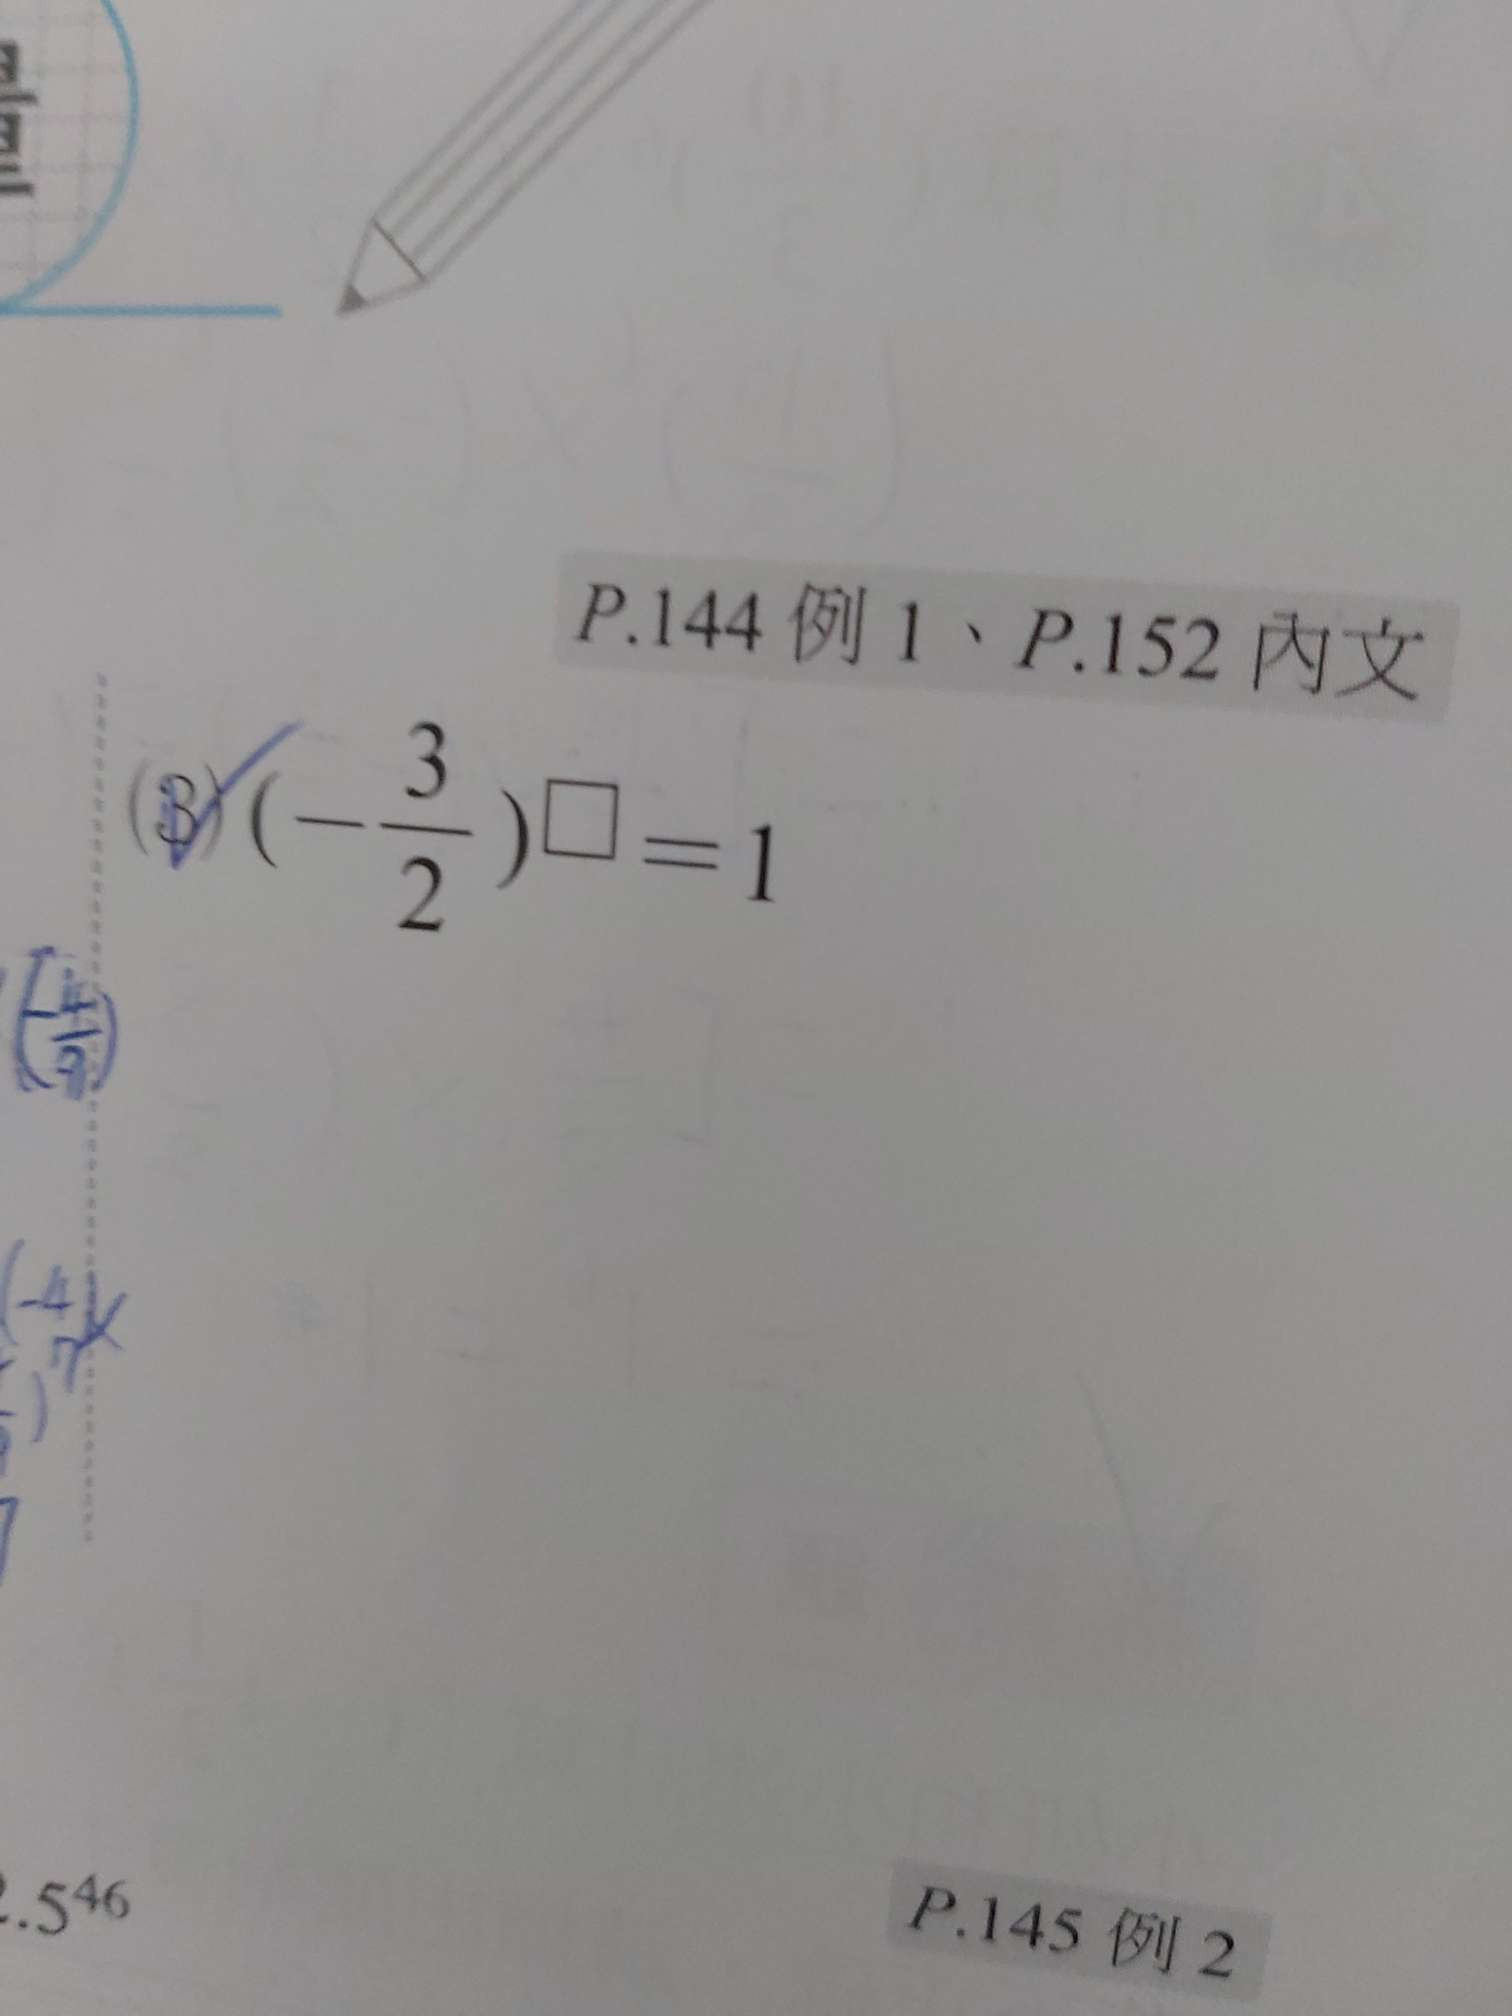 P.144 例 1、P.152 內文
(3) (－3/2)□＝1
(-4
7
.5⁴⁶
P.145 例 2